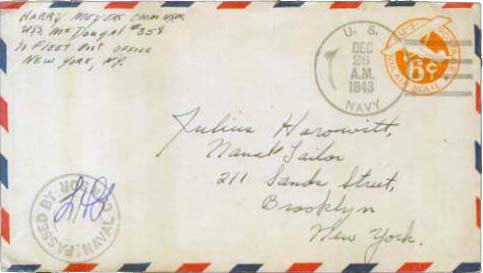 HARRY MEYER CMM USN
USS McDougal #358
% FLEET Post OFFICE
NEW YORK, N.Y.
U. S.
DEC
26
A.M.
1943
NAVY
6¢
VIA AIR MAIL
Julius Horowitt,
Naval Tailor
211 Sands Street,
Brooklyn
New York.
PASSED BY
NAVAL